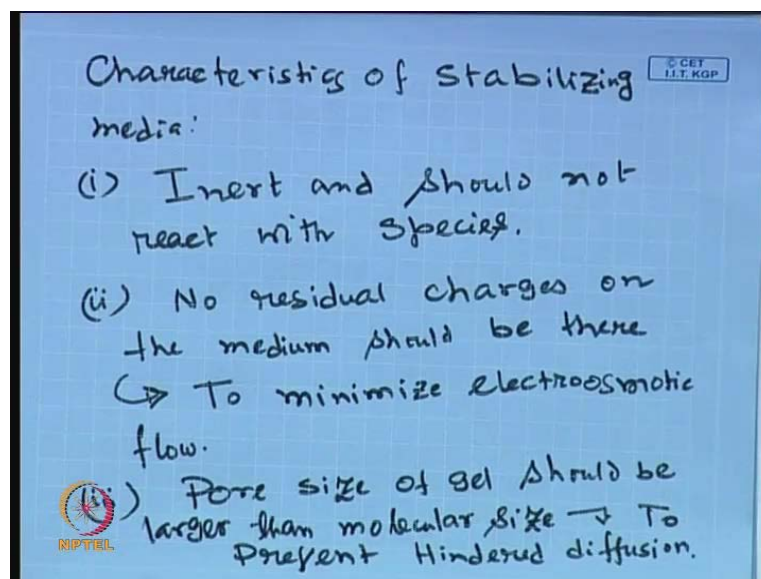 Characteristics of stabilizing
© CET
I.I.T. KGP
media:
(i) Inert and should not
react with species.
(ii) No residual charges on
the medium should be there
↳ To minimize electroosmotic
flow.
(iii) Pore size of gel should be
larger than molecular size → To
Prevent Hindered diffusion.
NPTEL